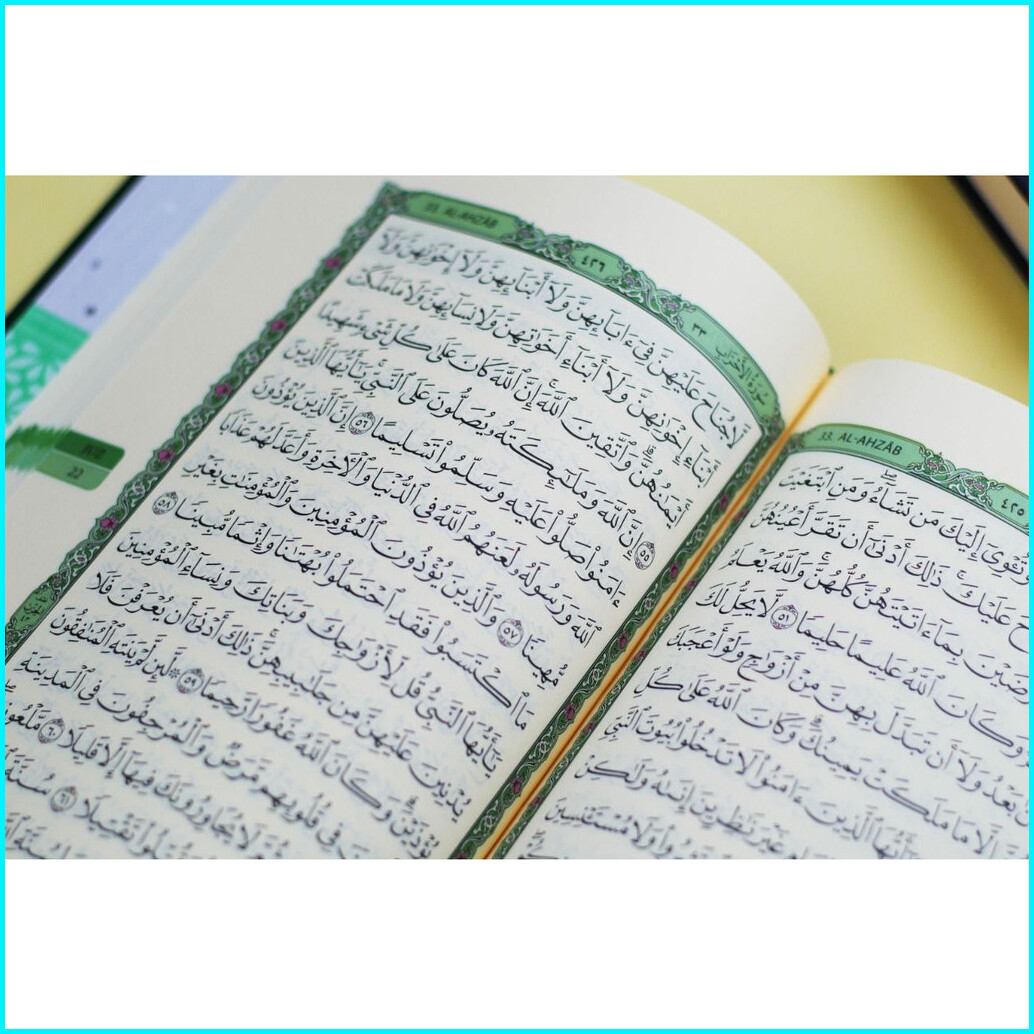 33. AL-AHZÂB
٤٢٥
إِلَيْكَ مَن تَشَآءُ وَمَنِ ٱبْتَغَيْتَ
عَلَيْكَ ذَٰلِكَ أَدْنَىٰٓ أَن تَقَرَّ أَعْيُنُهُنَّ
بِمَآ ءَاتَيْتَهُنَّ كُلُّهُنَّ وَٱللَّهُ يَعْلَمُ
وَكَانَ ٱللَّهُ عَلِيمًا حَلِيمًا ٥١ لَّا يَحِلُّ لَكَ
بَعْدُ وَلَآ أَن تَبَدَّلَ بِهِنَّ مِنْ أَزْوَٰجٍ وَلَوْ أَعْجَبَكَ
إِلَّا مَا مَلَكَتْ يَمِينُكَ وَكَانَ ٱللَّهُ عَلَىٰ كُلِّ
يَٰٓأَيُّهَا ٱلَّذِينَ ءَامَنُوا۟ لَا تَدْخُلُوا۟ بُيُوتَ ٱلنَّبِىِّ
غَيْرَ نَٰظِرِينَ إِنَىٰهُ وَلَٰكِنْ
وَلَا مُسْتَـْٔنِسِينَ
سُورَةُ الْأَحْزَاب ٣٣
٤٢٦
33. AL-AHZÂB
لَّا جُنَاحَ عَلَيْهِنَّ فِىٓ ءَابَآئِهِنَّ وَلَآ أَبْنَآئِهِنَّ وَلَآ إِخْوَٰنِهِنَّ وَلَآ
أَبْنَآءِ إِخْوَٰنِهِنَّ وَلَآ أَبْنَآءِ أَخَوَٰتِهِنَّ وَلَا نِسَآئِهِنَّ وَلَا مَا مَلَكَتْ
أَيْمَٰنُهُنَّ وَٱتَّقِينَ ٱللَّهَ إِنَّ ٱللَّهَ كَانَ عَلَىٰ كُلِّ شَىْءٍ شَهِيدًا
٥٥ إِنَّ ٱللَّهَ وَمَلَٰٓئِكَتَهُۥ يُصَلُّونَ عَلَى ٱلنَّبِىِّ يَٰٓأَيُّهَا ٱلَّذِينَ
ءَامَنُوا۟ صَلُّوا۟ عَلَيْهِ وَسَلِّمُوا۟ تَسْلِيمًا ٥٦ إِنَّ ٱلَّذِينَ يُؤْذُونَ
ٱللَّهَ وَرَسُولَهُۥ لَعَنَهُمُ ٱللَّهُ فِى ٱلدُّنْيَا وَٱلْءَاخِرَةِ وَأَعَدَّ لَهُمْ عَذَابًا
مُّهِينًا ٥٧ وَٱلَّذِينَ يُؤْذُونَ ٱلْمُؤْمِنِينَ وَٱلْمُؤْمِنَٰتِ بِغَيْرِ
مَا ٱكْتَسَبُوا۟ فَقَدِ ٱحْتَمَلُوا۟ بُهْتَٰنًا وَإِثْمًا مُّبِينًا ٥٨
يَٰٓأَيُّهَا ٱلنَّبِىُّ قُل لِّأَزْوَٰجِكَ وَبَنَاتِكَ وَنِسَآءِ ٱلْمُؤْمِنِينَ
يُدْنِينَ عَلَيْهِنَّ مِن جَلَٰبِيبِهِنَّ ذَٰلِكَ أَدْنَىٰٓ أَن يُعْرَفْنَ فَلَا
يُؤْذَيْنَ وَكَانَ ٱللَّهُ غَفُورًا رَّحِيمًا ٥٩ ۞ لَّئِن لَّمْ يَنتَهِ ٱلْمُنَٰفِقُونَ
فِى قُلُوبِهِم مَّرَضٌ وَٱلْمُرْجِفُونَ فِى ٱلْمَدِينَةِ
لَا يُجَاوِرُونَكَ فِيهَآ إِلَّا قَلِيلًا ٦٠ مَّلْعُونِينَ
تَقْتِيلًا ٦١ سُنَّةَ